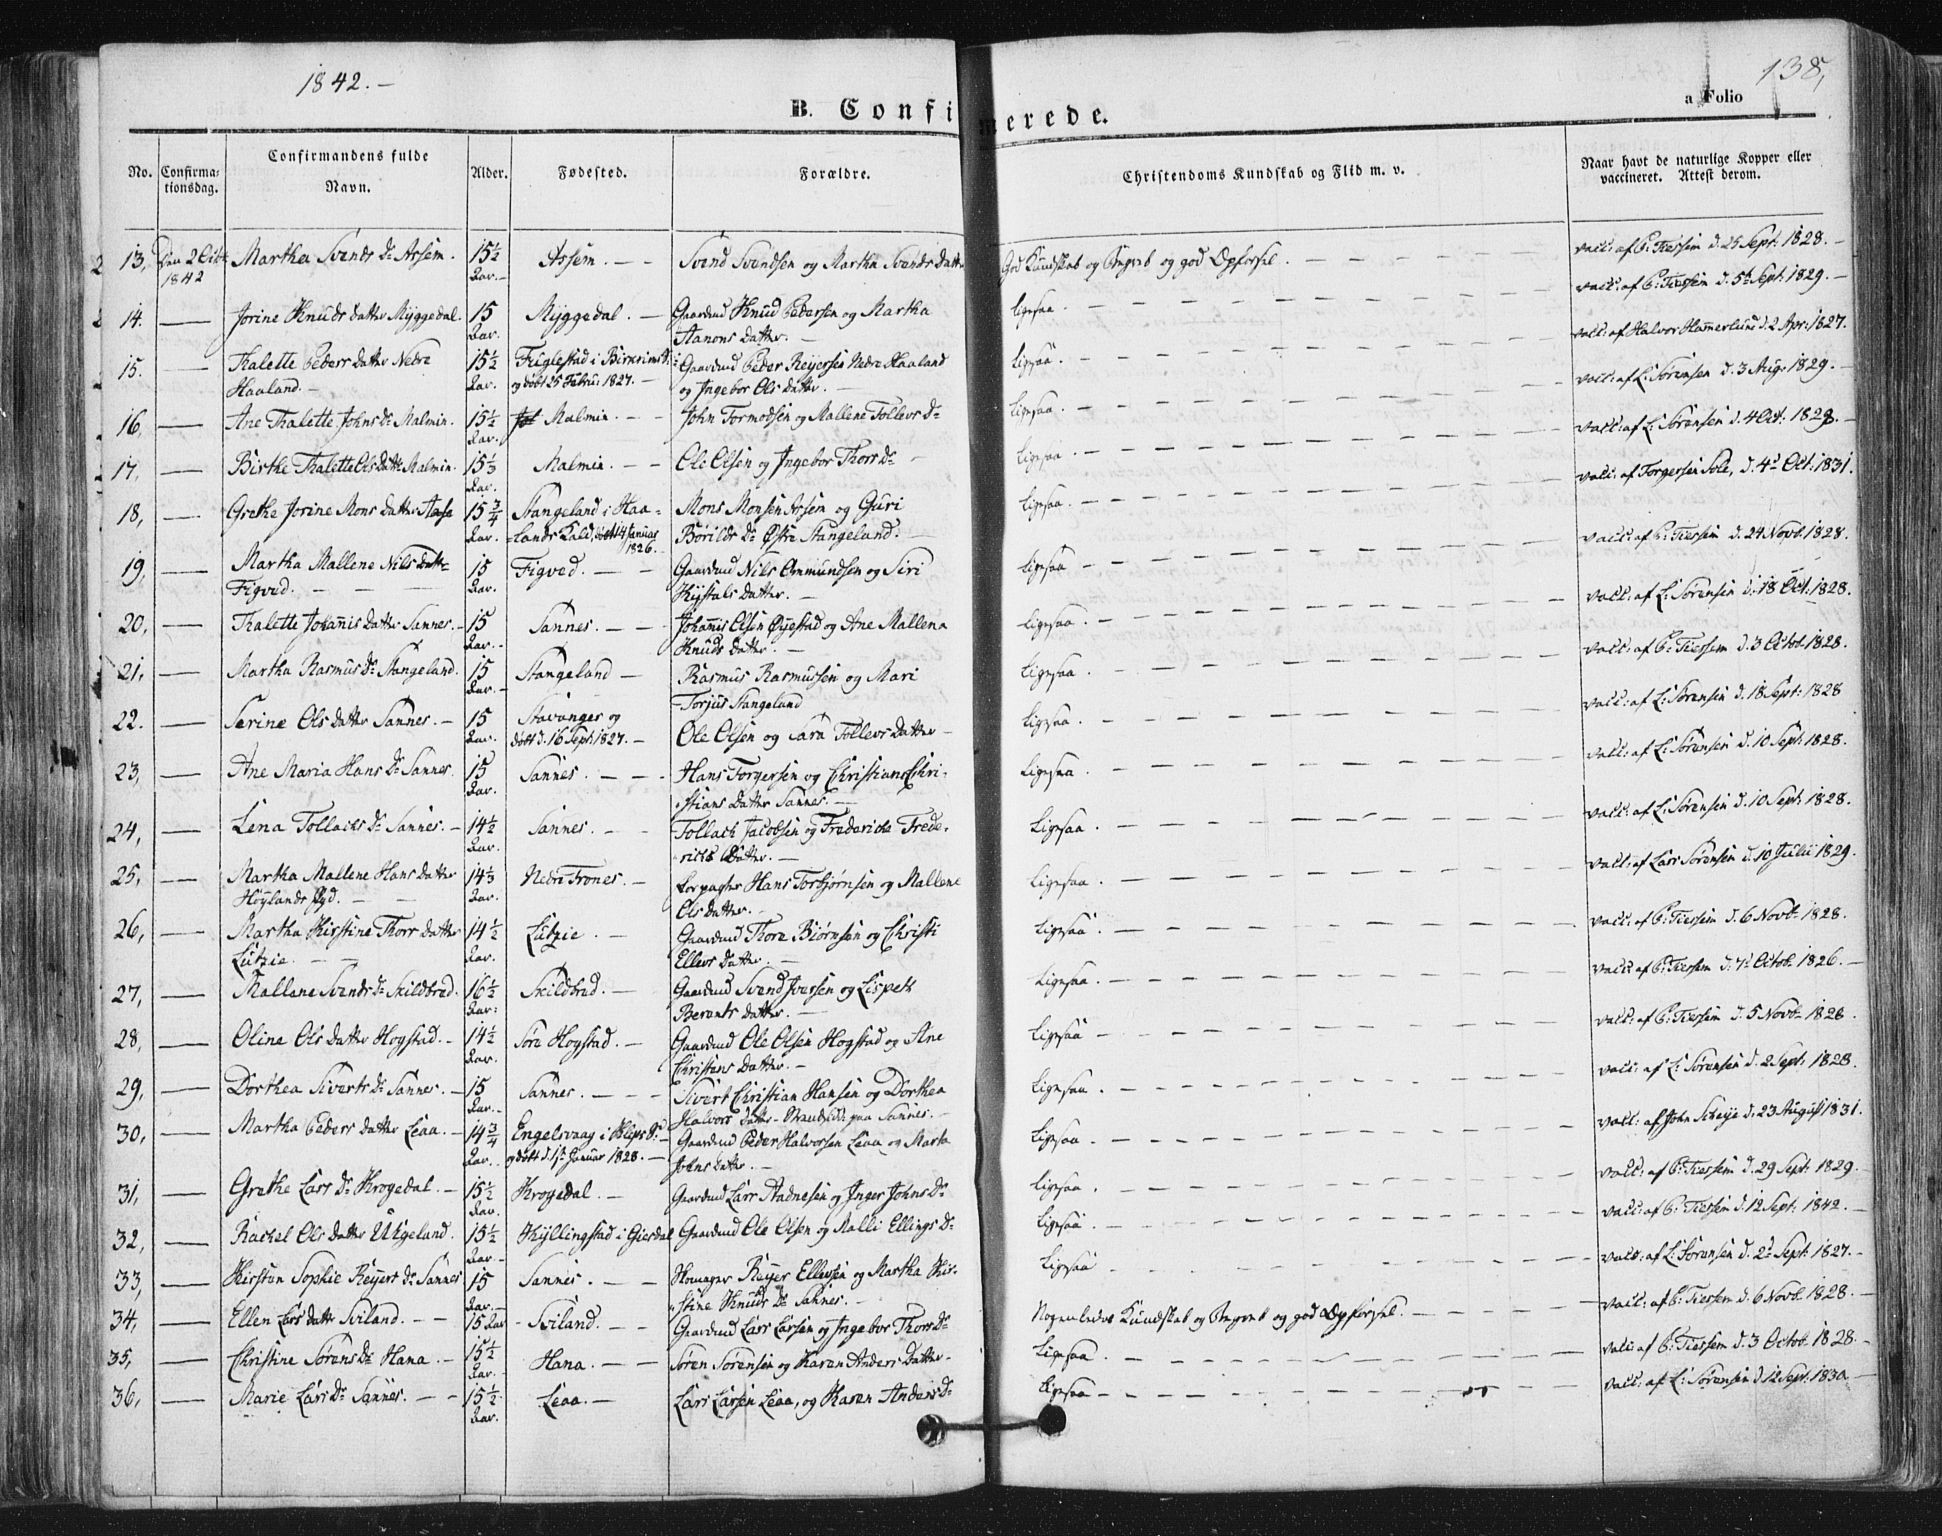 1842.-
138,
B. Confirmerede.
a Folio
No. Confirmationsdag. Confirmandens fulde Navn. Alder. Fødested. Forældre. Christendoms Kundskab og Flid m. v. Naar havt de naturlige Kopper eller vaccineret. Attest derom.
13, Den 2 Octb 1842 Martha Svends Dr Assem. 15½ Aar. Assem. Svend Svendsen og Martha Svends Datter God Kundskab og Begreb og god Opførsel. vacc: af P: Tiersem d. 25 Sept: 1828.
14. Jorine Knuds Datter Myggedal. 15 Aar. Myggedal. Gaardmd Knud Pedersen og Martha Aanons Datter. ligesaa. vacc: af P: Tiersem d. 5te Sept: 1829.
15. Thalette Peders Datter Nedre Haaland. 15½ Aar. Fuglestad i og døbt 25 Febru: 1827. Gaardmd Peder Reyersen Nedre Haaland og Ingebor Ols Datter. ligesaa. vacc: af Halvor Hamerlund d. 2 Apr: 1827.
16, Ane Thalette Johns Dr Malmin. 15½ Aar. Malmin. John Tormodsen og Mallene Tollevs Dr ligesaa. vacc: af L: Sørensen d. 3 Aug: 1829.
17, Birthe Thalette Ols Datter Malmin. 15⅓ Aar. Malmin. Ole Olsen og Ingebor Thors Dr ligesaa. vacc: af L: Sørensen d. 4 Oct: 1829.
18, Grethe Jorine Mons Datter 15¾ Aar. Stangeland i Haalands Kald, døbt 14 Januar 1826. Mons Monsen Assem og Guri Børilds Dr Østre Stangeland. ligesaa. vacc: af Torgersen Sole, d. 4d Oct: 1831.
19, Martha Mallene Nils Datter Figved. 15 Aar. Figved. Gaardmd Nils Ommundsen og Siri Kystals Datter. ligesaa. vacc: af P: Tiersem d. 24 Novb. 1828.
20, Thalette Johannis Datter Sannes. 15 Aar. Sannes. Johannis Olsen Øyestad og Ane Mallena Knuds Datter. ligesaa. vacc: af L: Sørensen d. 18 Oct: 1828.
21, Martha Rasmus Dr Stangeland. 15 Aar. Stangeland Rasmus Rasmussen og Mari Torjus Stangeland ligesaa. vacc: af P: Tiersem d. 3 Octob. 1828.
22. Serine Ols Datter Sannes. 15 Aar. Stavanger og døbt d. 16 Sept: 1827. Ole Olsen og Sara Tollevs Datter ligesaa. vacc: af L: Sørensen d. 18 Sept: 1828
23, Ane Maria Hans Dr Sannes. 15 Aar. Sannes. Hans Torgersen og Christiane Christians Datter Sannes. ligesaa. vacc: af L: Sørensen d. 10 Sept: 1828.
24, Lena Tollachs Dr Sannes. 14½ Aar. Sannes. Tollach Jacobsen og Fredericke Fredericks Datter. ligesaa. vacc: af L: Sørensen d. 10 Sept: 1828.
25, Martha Mallene Hans Datter Høylands 14⅓ Aar. Nedre Trones. Forpagter Hans Torbjørnsen og Mallene Ols Datter. ligesaa. vacc: af Lars Sørensen d. 10 Julii 1829.
26, Martha Kirstine Thors Datter Lutzie. 14½ Aar. Lutzie. Gaardmd Thore Biørnsen og Christi Ellevs Datter. ligesaa. vacc: af P: Tiersem d. 6 Novb. 1828.
27, Mallene Svends Dr Skildbred. 16½ Aar. Skildbred. Gaardmd Svend Iversen og Lispeth Berents Datter. ligesaa. vacc: af P: Tiersem d. 7d Octob. 1826.
28, Oline Ols Datter Hogstad. 14½ Aar. Søre Hogstad. Gaardmd Ole Olsen Hogstad og Ane Christens Datter. ligesaa vacc: af P: Tiersem d. 5 Novb 1828.
29, Dorthea Siverts Dr Sannes. 15 Aar. Sannes. Sivert Christian Hansen og Dorthea Halvors Datter Strandsidd: paa Sannes. ligesaa. vacc: af L: Sørensen d. 2 Sept: 1828.
30, Martha Peders Datter Leaa. 14¾ Aar. Engelsvaag i Kleps og døbt d. Januar 1828. Gaardmd Peder Halvorsen Leaa og Marta Johns Datter. ligesaa. vacc: af John Scheje d. 23 August 1831.
31, Grethe Lars Dr Krogedal. 15½ Aar. Krogedal. Gaardmd Lars Aadnesen og Inger Johns Dr ligesaa. vacc: af P: Tiersem d. 29 Sept: 1829.
32, Rachel Ols Datter Utgeland. 15½ Aar. Kyllingstad i Giesdal Gaardmd Ole Olsen og Malli Ellings Dr ligesaa. vacc: af P: Tiersem d. 12 Sept: 1842.
33, Kirsten Sophie Reyers Dr Sannes 15 Aar. Sannes. Skomager Reyer Ellevsen og Martha Kirstine Knuds Dr Sannes. ligesaa vacc: af L: Sørensen d. 2d Sept: 1827.
34, Ellen Lars Datter Sviland. 15 Aar Sviland. Gaardmd Lars Larsen og Ingebor Thors Dr Nogenledes Kundskab og Begreb og god Opførsel. vacc: af P: Tiersem d. 6 Novb. 1828.
35, Christine Sørens Dr Hana. 15½ Aar. Hana. Søren Sørensen og Karen Anders Datter. ligesaa. vacc: af P: Tiersem d. 3 Octob. 1828.
36, Marie Lars Dr Sannes. 15½ Aar. Leaa. Lars Larsen Leaa, og Karen Anders Dr ligesaa vacc: af L: Sørensen d. 12 Sept: 1830